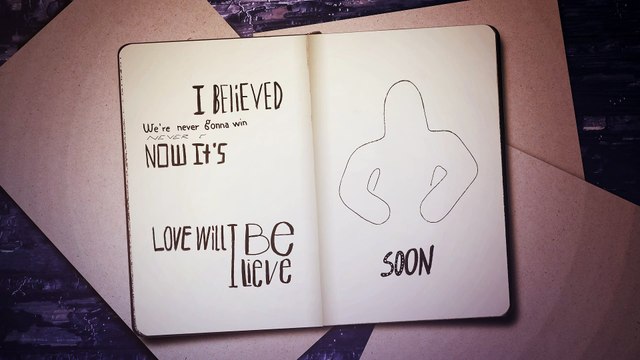 I BELiEVED
We're never Gonna win
NEVER
NOW It's
LOVE WiLL I BE
LIEVE
SOON